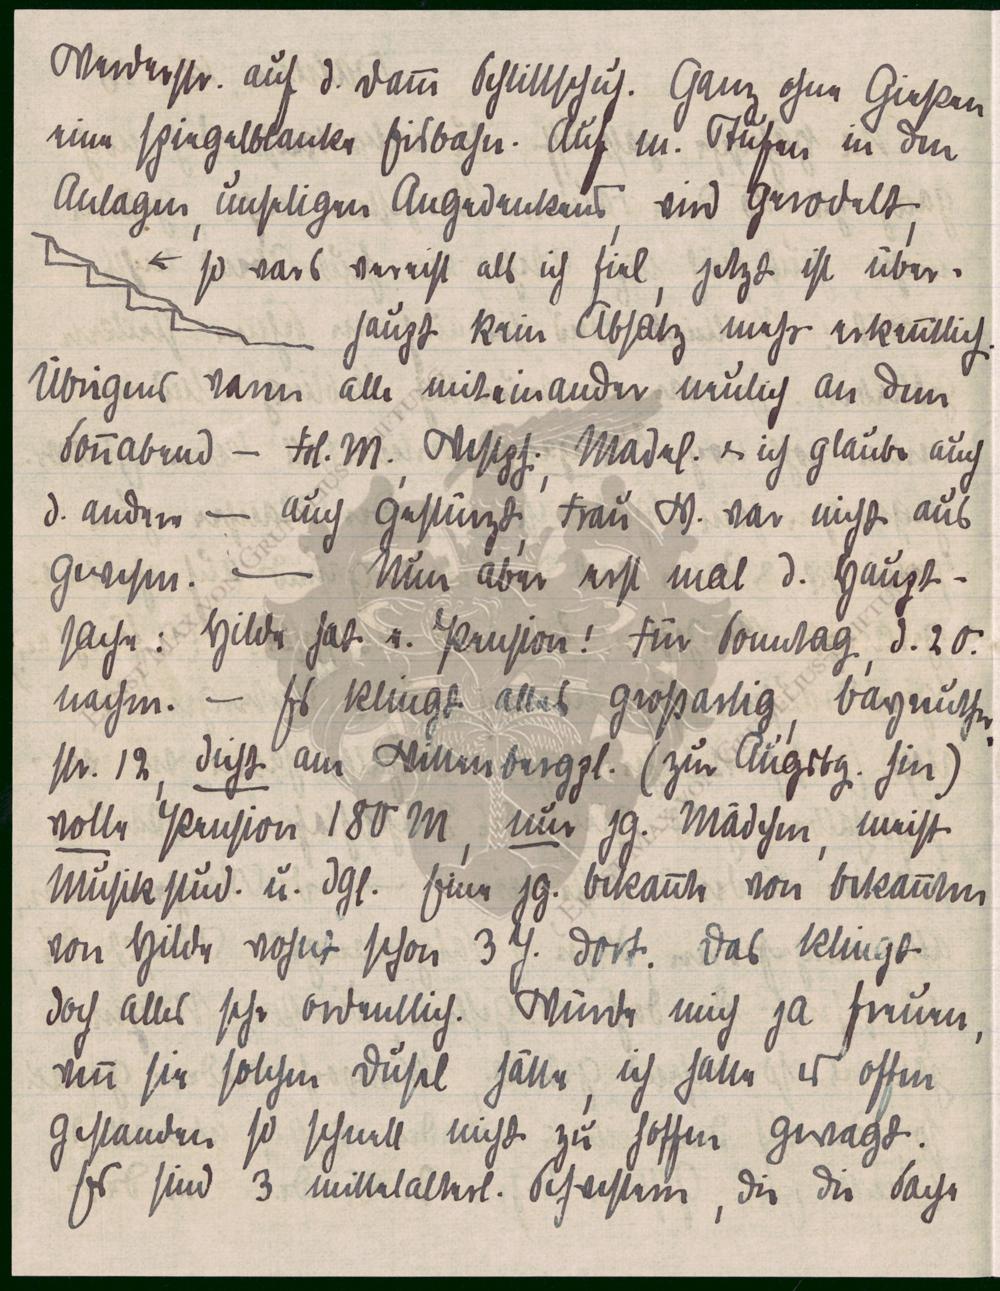 Werderstr. auf d. Dam̅ Schlittschuh. Ganz ohne Gießen
eine spiegelblanke Eisbahn. Auf m. Stufen in den
Anlagen, unseligen Angedenkens, wird gerodelt,
← so wars vereist als ich fiel, jetzt ist über-
haupt kein Absatz mehr erken̅tlich.
Übrigens waren alle miteinander neulich an dem
Son̅abend – Frl. M., Westph., Madel. & ich glaube auch
d. andere — auch gestürzt, Frau W. war nicht aus
gewesen. — Nun aber erst mal d. Haupt-
sache: Hilde hat e. Pension! Für Sonntag, d. 20.
nachm. — Es klingt alles großartig, Bayreuther
str. 12, dicht am Wittenbergpl. (zur Augsbg. hin)
volle Pension 180 M, nur jg. Mädchen, meist
Musikstud. u. dgl. Eine jg. Bekan̅te von Bekan̅ten
von Hilde wohnt schon 3 J. dort. Das klingt
doch alles sehr ordentlich. Würde mich ja freuen,
wen̅ sie solchen Dusel hätte, ich hatte es offen
gestanden so schnell nicht zu hoffen gewagt.
Es sind 3 mittelalterl. Schwestern, die die Sache